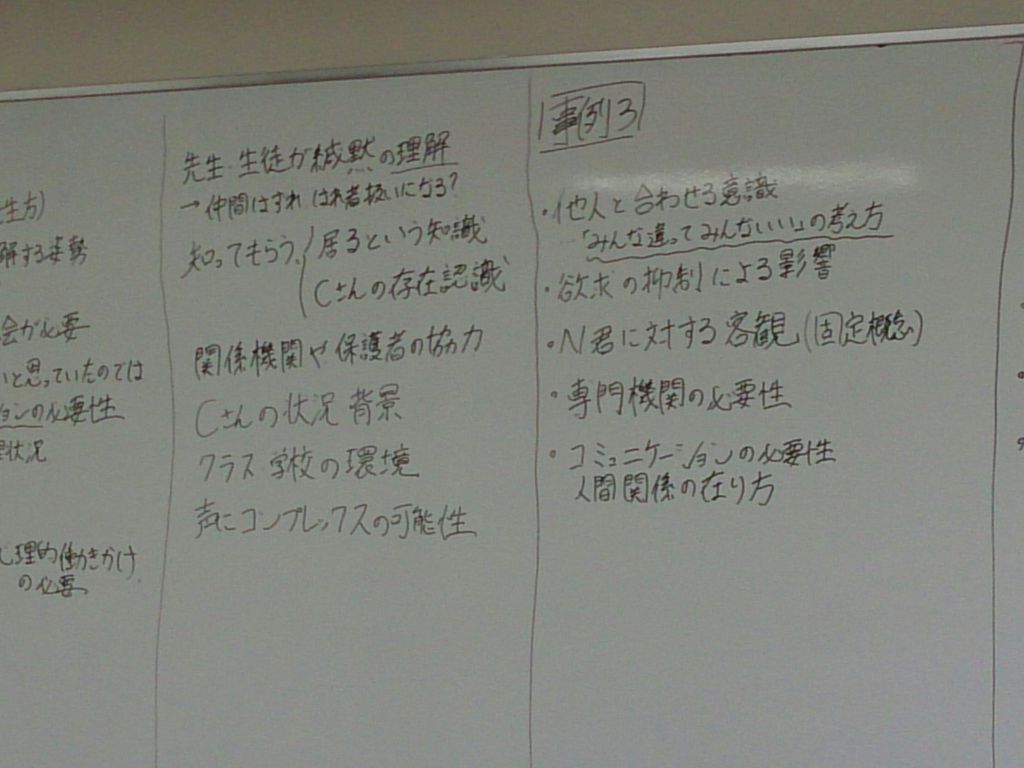 生方)
解する姿勢
会が必要
いと思っていたのでは
ションの必要性
状況
心理的働きかけ
の必要
先生 生徒が緘黙の理解
→仲間はずれ はれ者扱いになる?
知ってもらう 居るという知識
Cさんの存在認識
関係機関や保護者の協力
Cさんの状況 背景
クラス 学校の環境
声にコンプレックスの可能性
事例3
・他人と合わせる意識
「みんな違ってみんないい」の考え方
・欲求の抑制による影響
・N君に対する客観(固定概念)
・専門機関の必要性
・コミュニケーションの必要性
人間関係の在り方